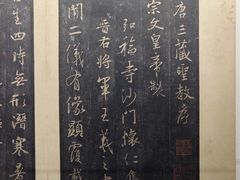 唐三藏聖教序
宗文皇帝製
弘福寺沙門懷仁集
晉右將軍王羲之
聞二儀有像顯覆載
生四時無形潛寒暑